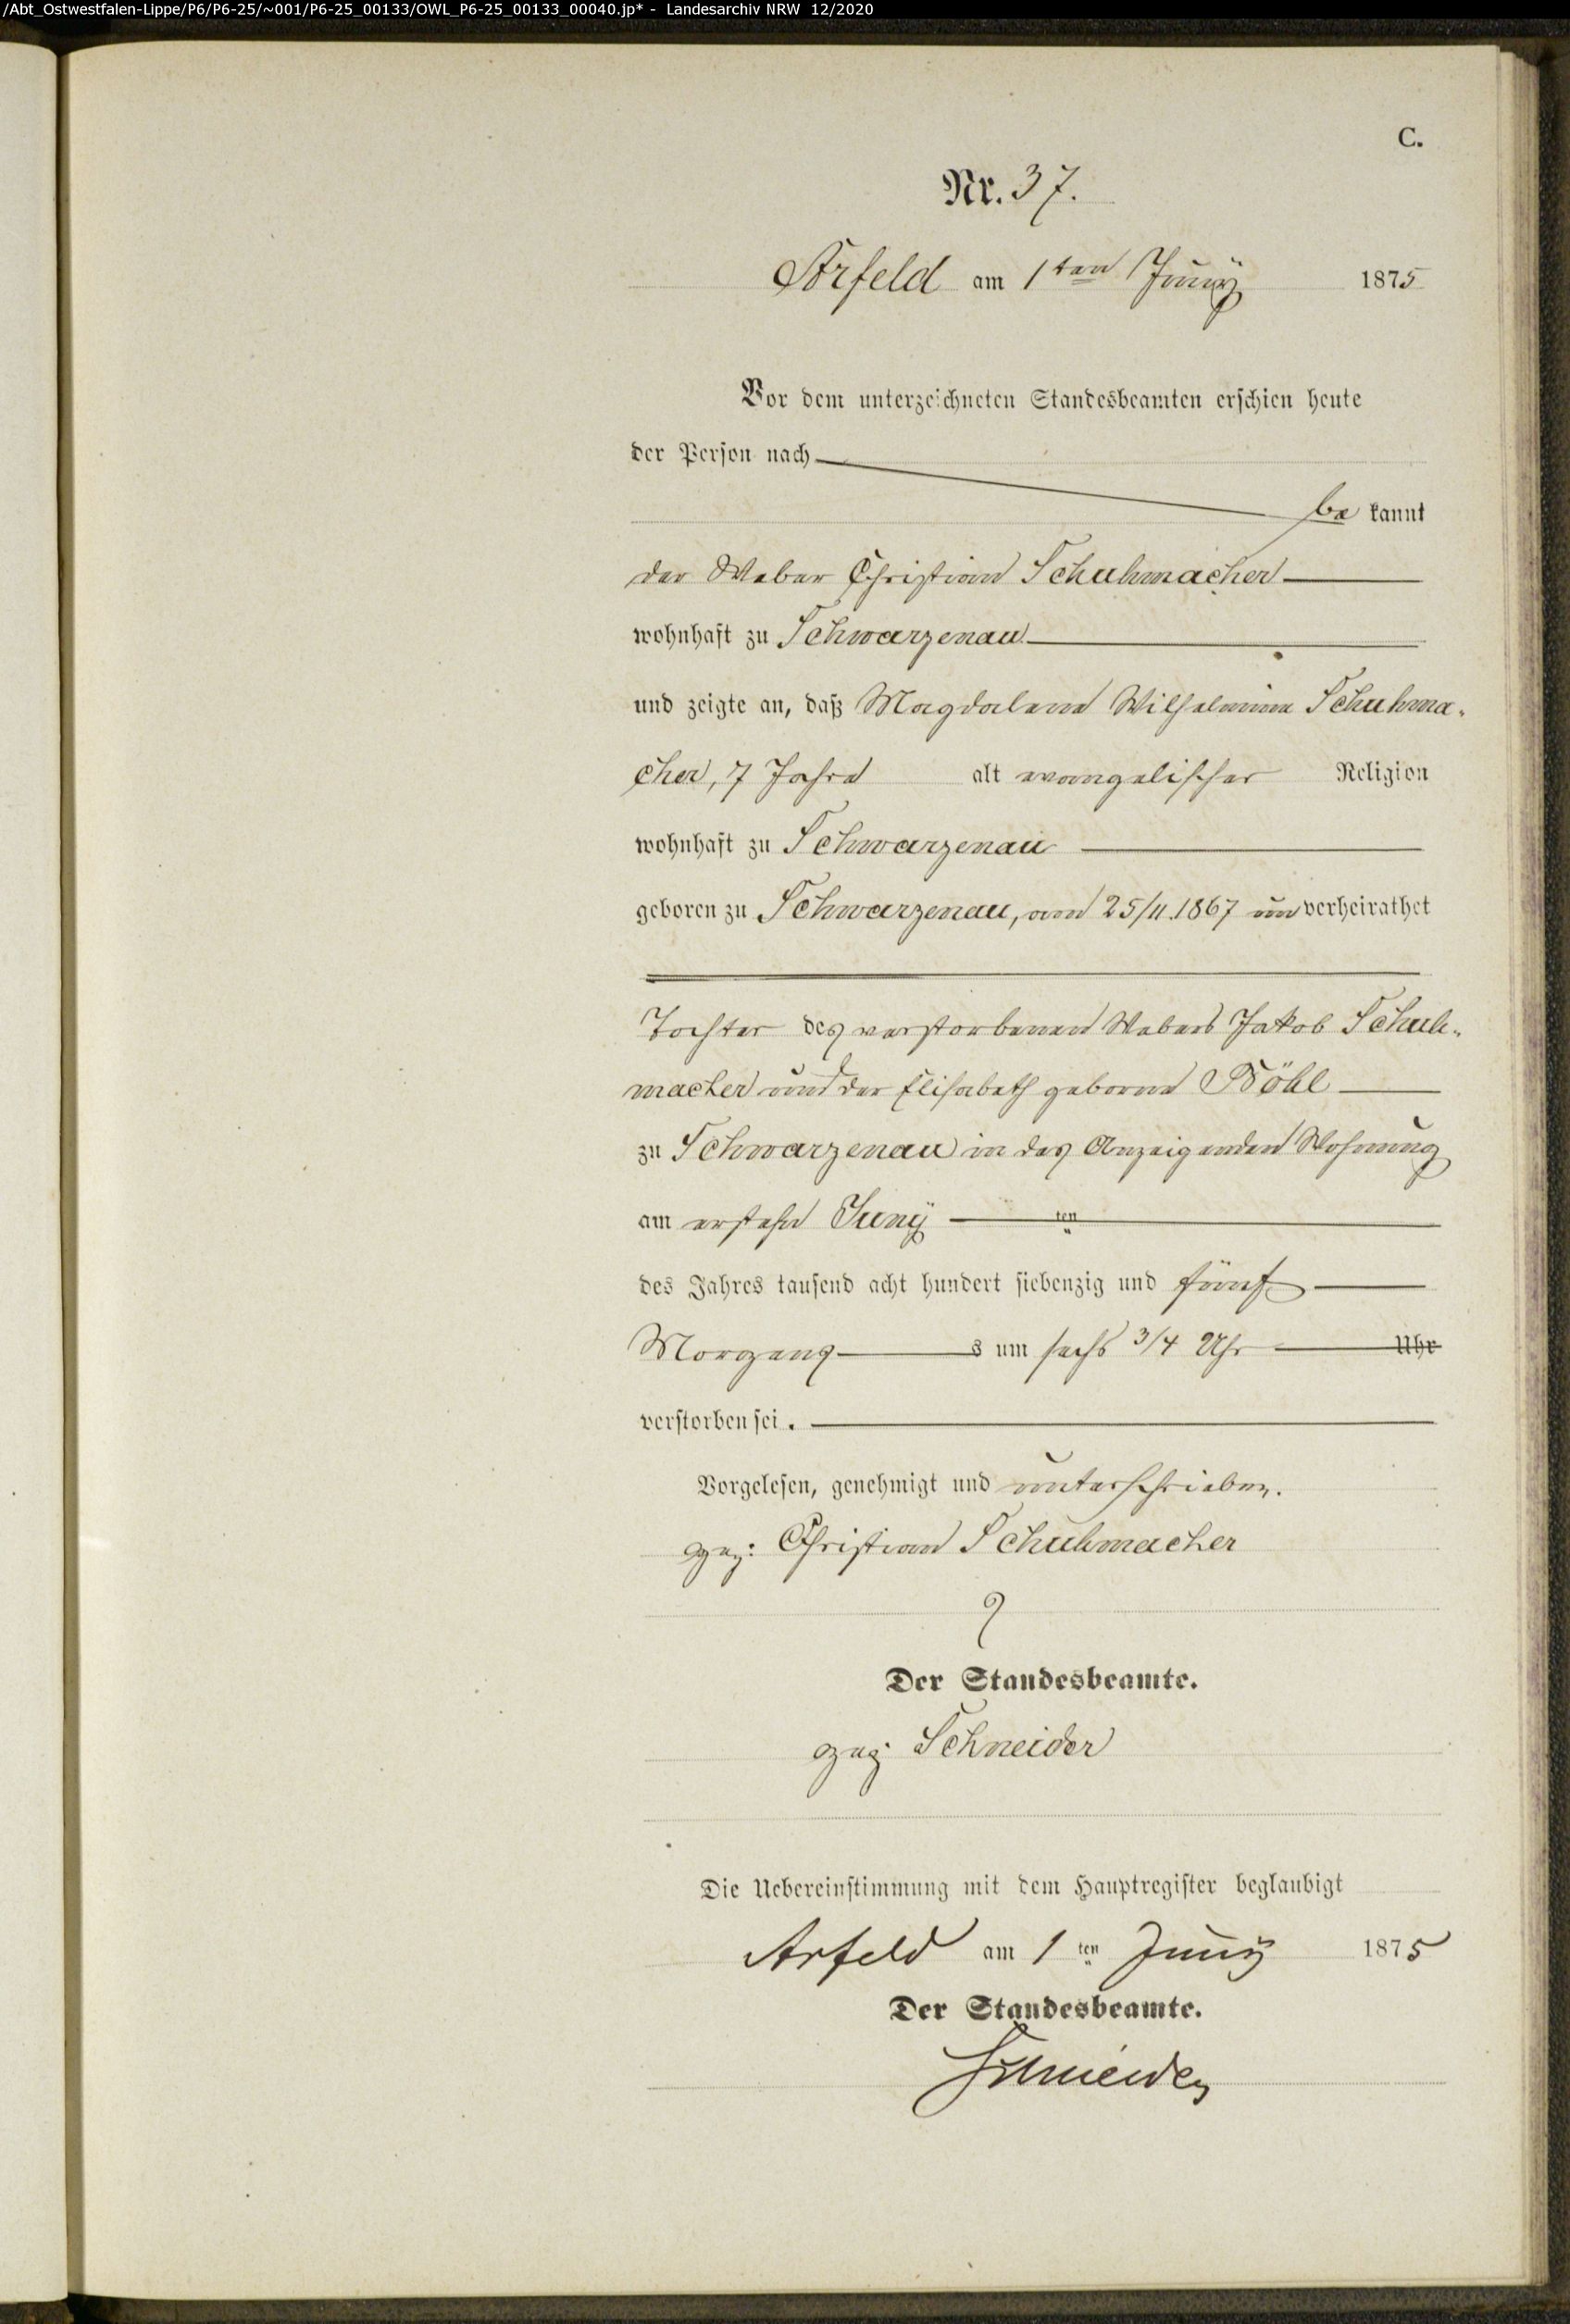 /Abt_Ostwestfalen-Lippe/P6/P6-25/~001/P6-25_00133/OWL_P6-25_00133_00040.jp* - Landesarchiv NRW 12/2020
C.
Nr. 37.
Arfeld am 1ten Juny 1875
Vor dem unterzeichneten Standesbeamten erschien heute
der Person nach
be kannt
der Weber Christian Schuhmacher
wohnhaft zu Schwarzenau
und zeigte an, daß Magdalena Wilhelmine Schuhma-
cher, 7 Jahre alt evangelischer Religion
wohnhaft zu Schwarzenau
geboren zu Schwarzenau, am 25/11.1867 unverheirathet
Tochter des verstorbenen Webers Jakob Schuh-
macher und der Elisabeth geborne Böhl
zu Schwarzenau in des Anzeigenden Wohnung
am ersten Juny ten
des Jahres tausend acht hundert siebenzig und fünf
Morgens s um sechs 3/4 Uhr Uhr
verstorben sei.
Vorgelesen, genehmigt und unterschrieben.
gez: Christian Schuhmacher
Der Standesbeamte.
gez: Schneider
Die Uebereinstimmung mit dem Hauptregister beglaubigt
Arfeld am 1 ten Juny 1875
Der Standesbeamte.
Schneider